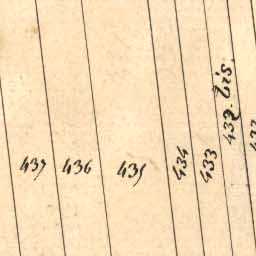 437
436
435
434
433
432. bis.